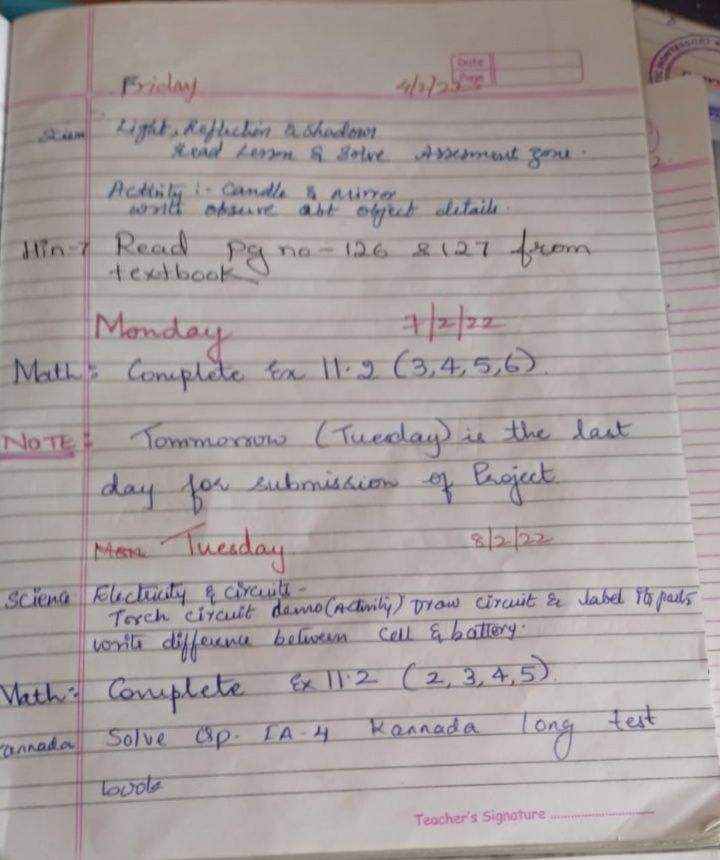 Date
Page
Friday 4/2/22
Light, Reflection & Shadows
Read Lesson & Solve Assesment zone.
Activity :- Candle & mirror
write observe abt object details.
Hin-7 Read pg no - 126 & 127 from
textbook
Monday 7/2/22
Math: Complete Ex 11.2 (3,4,5,6).
NOTE: Tommorrow (Tuesday) is the last
day for submission of Project
Tuesday 8/2/22
Electricity & circuits -
Torch circuit demo (Activity) Draw circuit & label its parts
write difference between cell & battery.
Math: Complete Ex 11.2 (2,3,4,5).
annada Solve IA-4 Kannada long test
Teacher's Signature